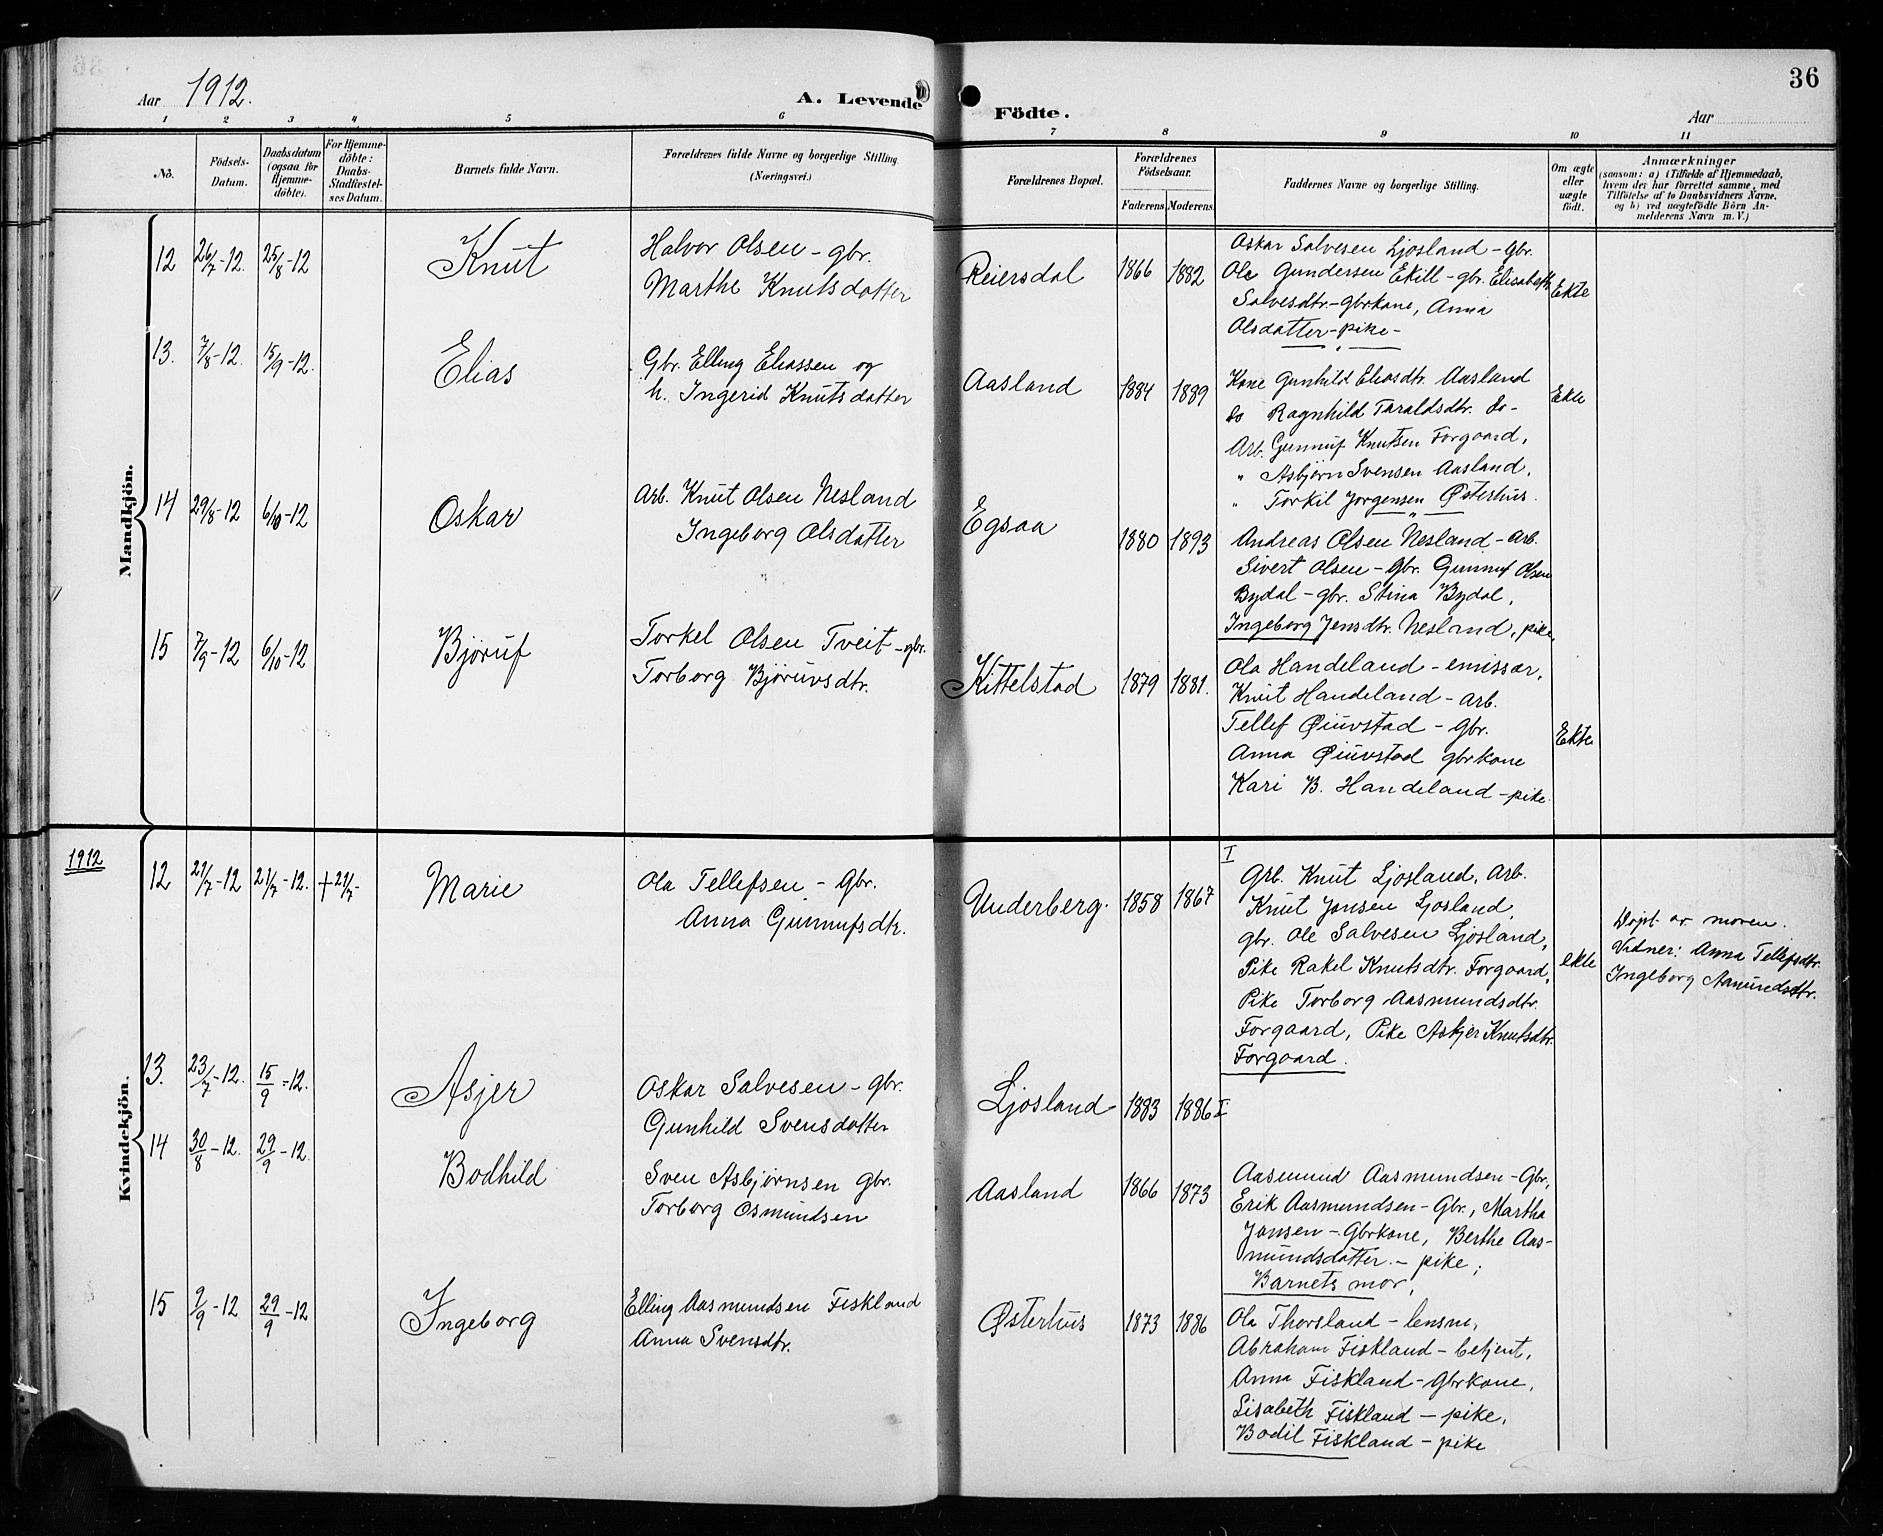 36
Aar 1912.
A. Levende Födte.
Aar
1 2 3 4 5 6 7 8 9 10 11
No.
Födsels-Datum.
Daabsdatum (ogsaa for Hjemme-döbte).
For Hjemme-döbte: Daabs-Stadfæstel-ses Datum.
Barnets fulde Navn.
Forældrenes fulde Navne og borgerlige Stilling.
(Næringsvei.)
Forældrenes Bopæl.
Forældrenes Födselsaar.
Faderens Moderens.
Faddernes Navne og borgerlige Stilling.
Om ægte eller uægte födt.
Anmærkninger
(saasom: a) i Tilfælde af Hjemmedaab,
hvem der har forrettet samme, med
Tilföielse af to Daabsvidners Navne,
og b) ved uægtefödte Börn An-
melderens Navn m. V.)
Mandkjön.
12 26/7-12. 25/8-12 Knut
Halvor Olsen - gbr.
Marthe Knutsdatter
Reiersdal 1866 1882
Oskar Salvesen Ljosland - Gbr.
Ola Gundersen Ekill - gbr. Elisabeth
Salvesdtr - gbrkone, Anna
Olsdatter - pike -
Ekte
13. 7/8-12. 15/9-12. Elias
Gbr. Elling Eliassen og
h. Ingerid Knutsdatter
Aasland 1884 1889
Kone Gunhild Eliasdtr. Aasland
do Ragnhild Taraldsdtr. do -
Arb. Gunnuf Knutsen Forgaard,
" Asbjørn Svensen Aasland,
" Torkil Jørgensen Østerhus.
Ekte
14 29/8-12 6/10-12 Oskar
Arb. Knut Olsen Nesland
Ingeborg Olsdatter
Egsaa 1880 1893
Andreas Olsen Nesland - Arb.
Sivert Olsen - Gbr. Gunnuf Olsen
Bydal - gbr. Stina Bydal,
Ingeborg Jensdtr. Nesland, pike.
15 7/9-12 6/10-12 Bjøruf
Torkel Olsen Tveit - gbr.
Torborg Bjøruvsdtr.
Kittelstad 1879 1881.
Ola Handeland - emissær,
Knut Handeland - Arb.
Tellef Øiuvstad - Gbr.
Anna Øiuvstad gbrkone
Kari B. Handeland - pike.
Ekte
1912
Kvindekjön.
12 21/7-12 21/7-12. +21/7- Marie
Ola Tellefsen - Gbr.
Anna Gunnufsdtr.
Underberg. 1858 1867
I
Grb. Knut Ljosland, Arb.
Knut Jansen Ljosland,
gbr. Ole Salvesen Ljosland,
Pike Rakel Knutsdtr. Forgaard,
Pike Torborg Aasmundsdtr.
Forgaard, Pike Askjer Knutsdtr.
Forgaard.
ekte
Døpt av moren.
Vidner: Anna Tellefsdtr.
Ingeborg Aanundsdtr.
13. 23/7-12. 15/9-12. Asjer
Oskar Salvesen - gbr.
Gunhild Svensdatter
Ljosland 1883 1886 I
14 30/8-12. 29/9-12. Bodhild
Sven Asbjørnsen gbr.
Torborg Osmundsen
Aasland 1866 1873
Aasmund Aasmundsen - Gbr,
Erik Aasmundsen - Gbr., Martha
Jansen - Gbrkone, Berthe Aas-
mundsdatter. - pike;
Barnets mor,
15 9/9-12 29/9-12 Ingeborg
Elling Aasmundsen Fiskland
Anna Svensdtr.
Østerhus 1873 1886
Ola Thorsland - lensm,
Abraham Fiskland - betjent,
Anna Fiskland - Gbrkone,
Lisabeth Fiskland - pike,
Bodil Fiskland - pike